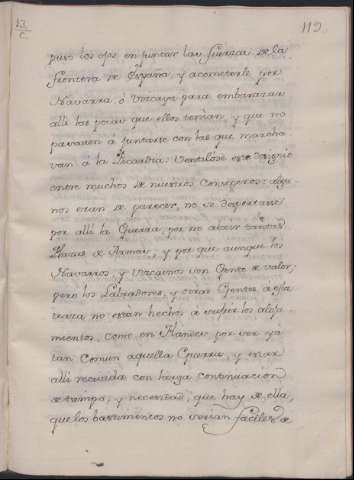 119.
puso los ojos en juntar las fuerzas de la
frontera de España, y acometerle por
Navarra, ó Vizcaya para embarazar
alli las pocas que ellos tenian, y que no
pasasen á juntarse con las que marcha
van á la Picardia. Ventilóse este
entre muchos de nuestros Consejeros: algu
nos eran de parecer, no se despertase
por alli la Guerra por no abrir tantas
Plazas de Armas, y por que aunque los
Navarros, y Vizcainos son Gente de valor,
pero los Labradores, y otras Gentes a esta
traza no están hechos a sufrir los aloja
mientos, como en Flandes por ser ya
tan comun aquella Guerra, y estar
alli recivida con larga continuacion
de tiempo, y necesidad, que hay de ella,
que los bastimentos no serian faciles de